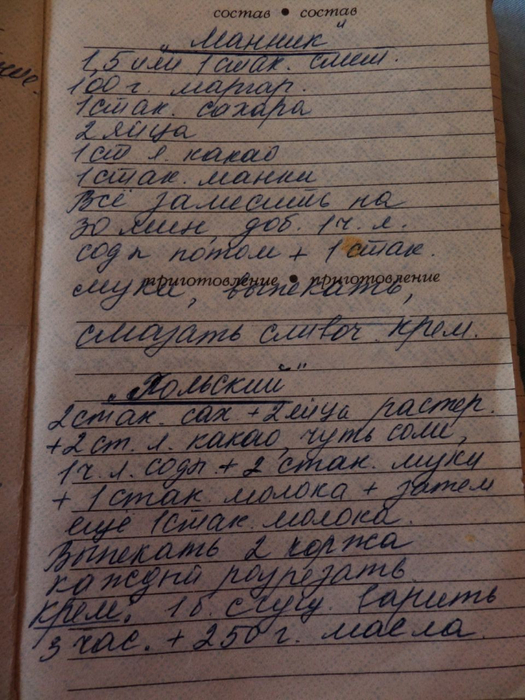 состав • состав
„Манник"
1,5 или 1 стак. смет.
100 г. маргар.
1 стак. сахара
2 яйца
1 ст л. какао
1 стак. манки
Всё замесить на
30 мин, доб. 1 ч. л.
соды потом + 1 стак.
приготовление • приготовление
мука, выпекать,
смазать сливоч. крем.
„Польский"
2 стак. сах + 2 яйца растер.
+ 2 ст. л. какао, чуть соли,
1 ч. л. соды + 2 стак. муки
+ 1 стак. молока + затем
ещё 1 стак. молока.
Выпекать 2 коржа
каждый разрезать
Крем: 1 б. сгущ. варить
3 час. + 250 г. масла.